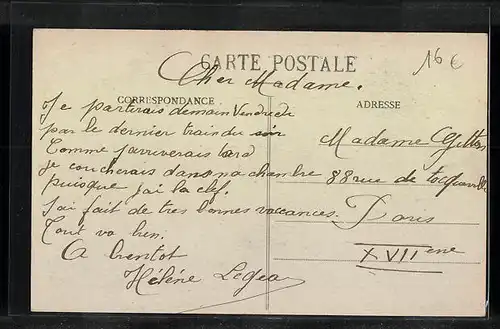 CARTE POSTALE
16 €
Cher Madame.
CORRESPONDANCE
ADRESSE
Je partirais demain Vendredi
par le dernier train du soir
Comme j'arriverais tard
je coucherais dans ma chambre
puisque j'ai la clef.
J'ai fait de tres bonnes vacances.
Tout va bien.
A bientot
Hélène
Madame
88 rue de Tocqueville
Paris
XVII eme